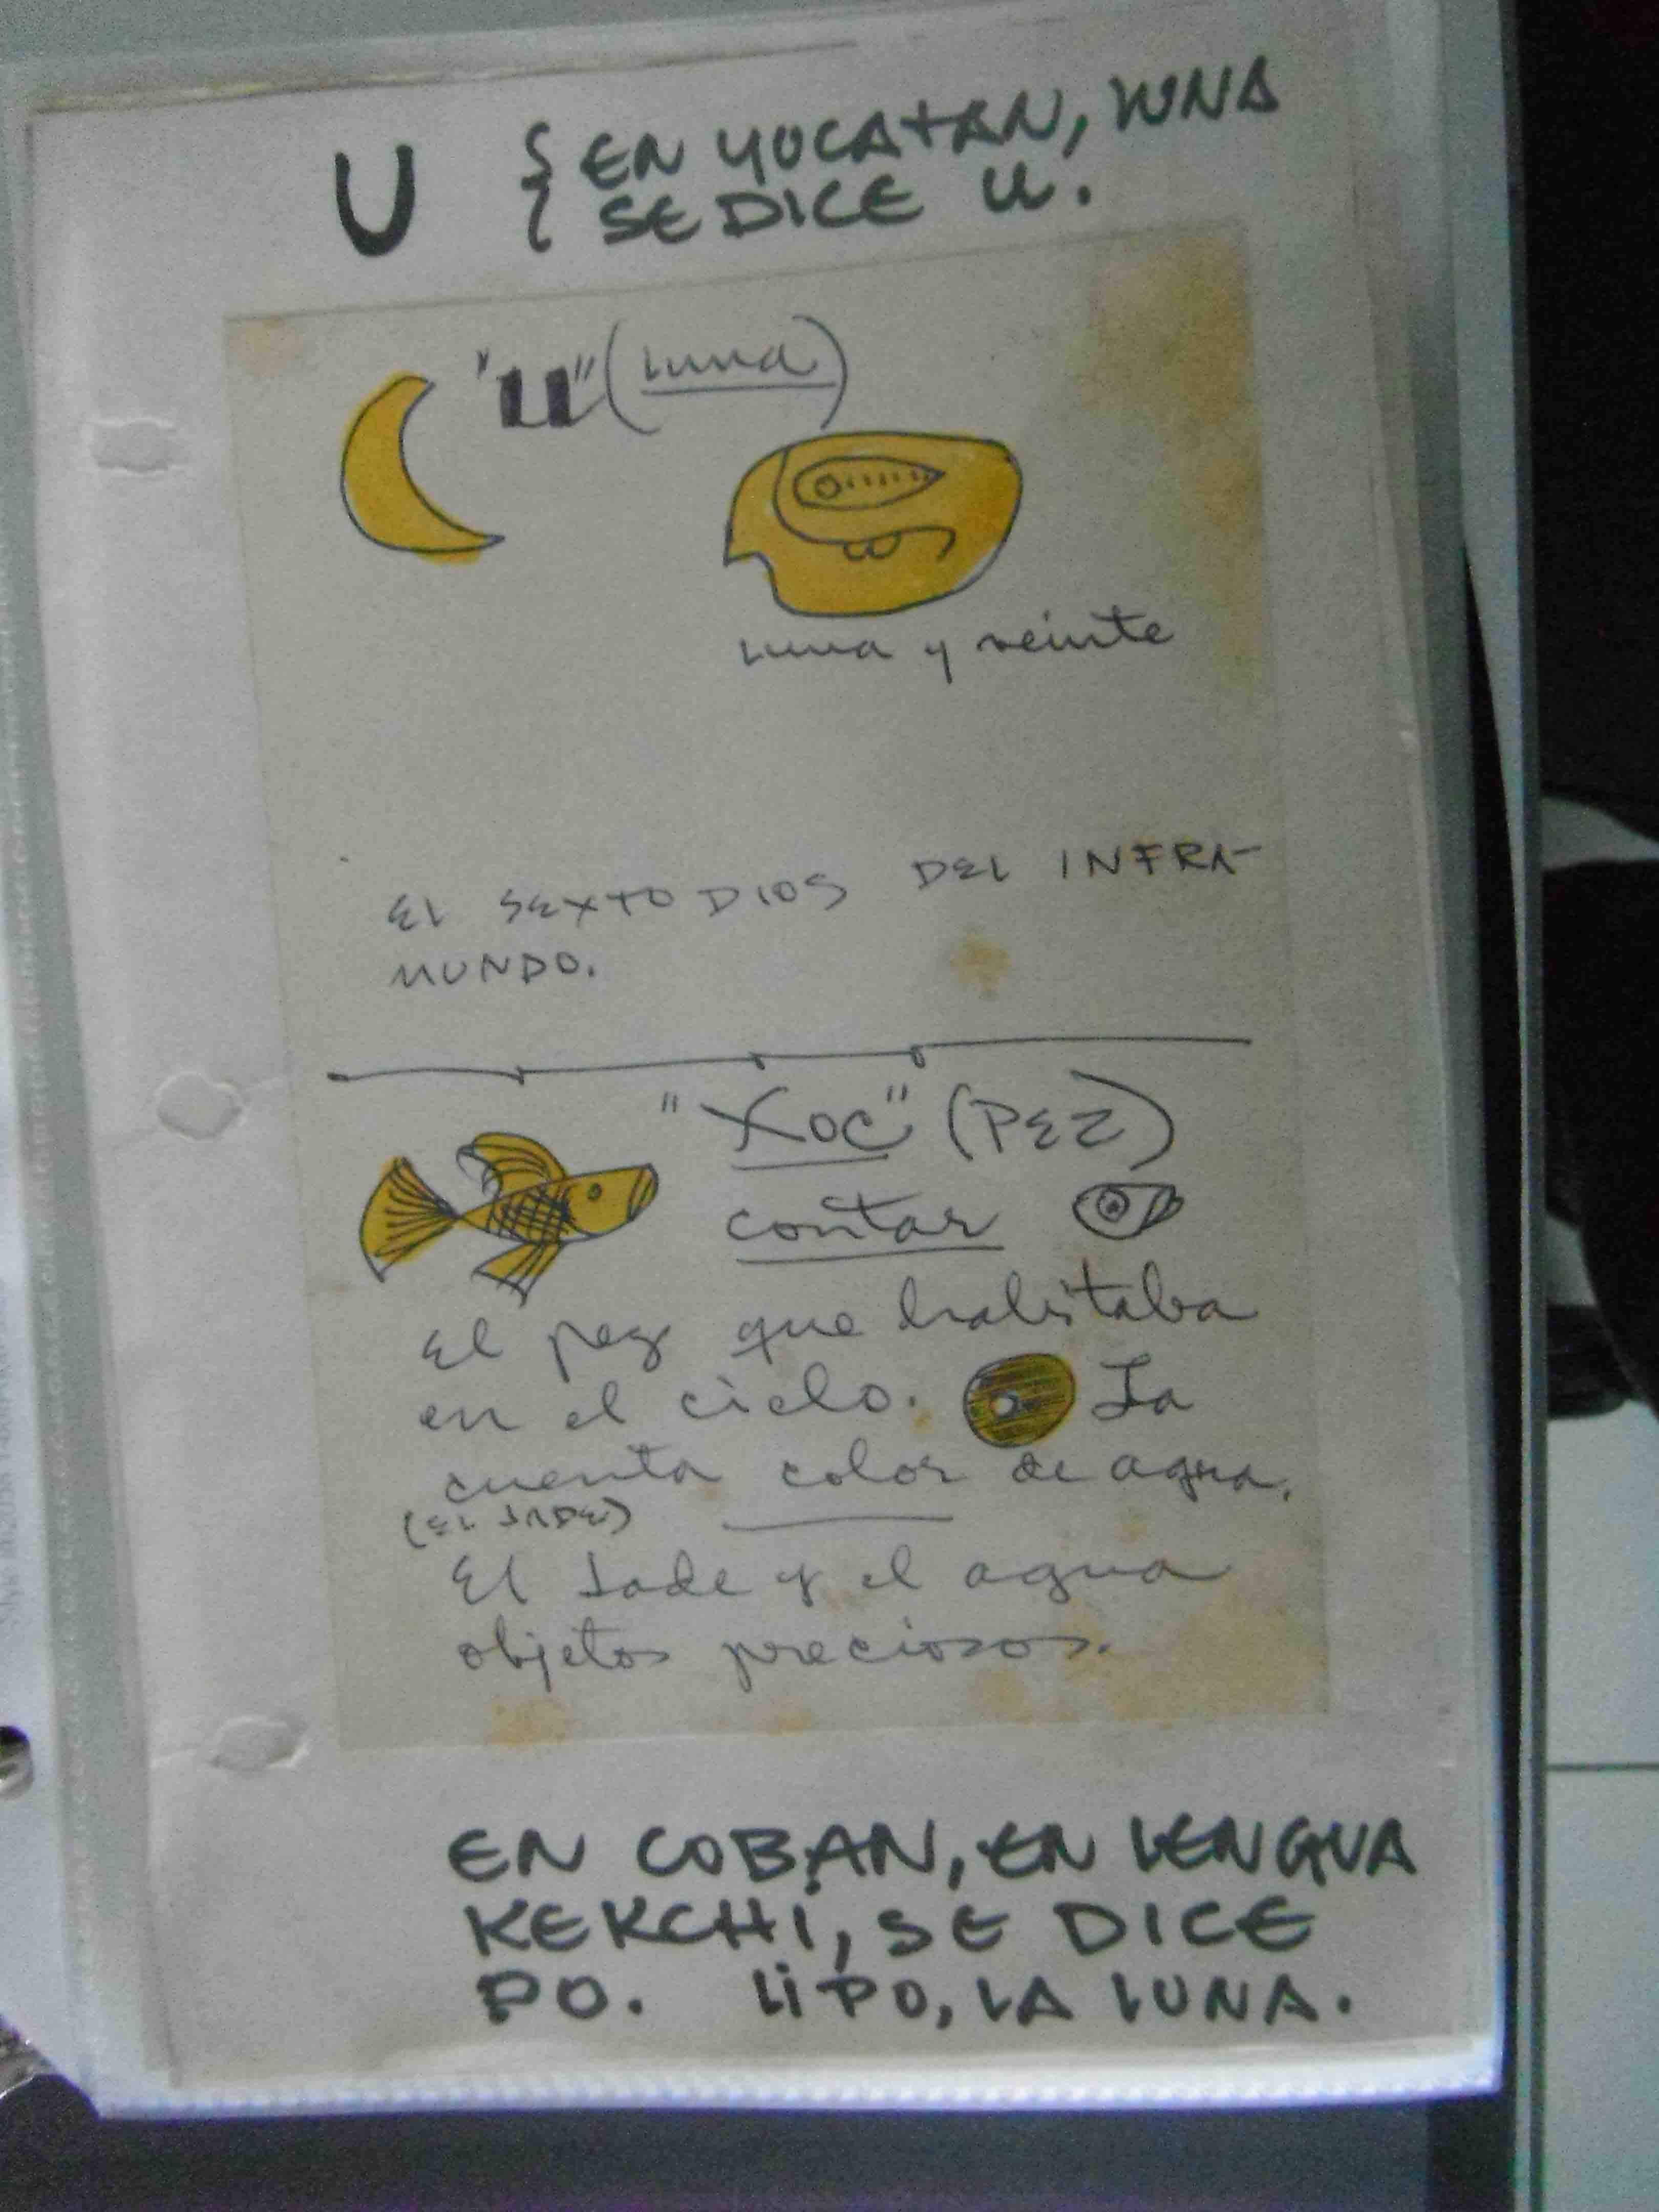 U { EN YUCATAN, LUNA
SE DICE U.
"U" (Luna)
Luna y veinte
EL SEXTO DIOS DEL INFRA-
MUNDO.
"XOC" (PEZ)
contar
El pez que habitaba
en el cielo. La
cuenta color de agua.
(EL JADE)
El Jade y el agua
objetos preciosos.
EN COBAN, EN LENGUA
KEKCHÍ, SE DICE
PO. LiPO, LA LUNA.